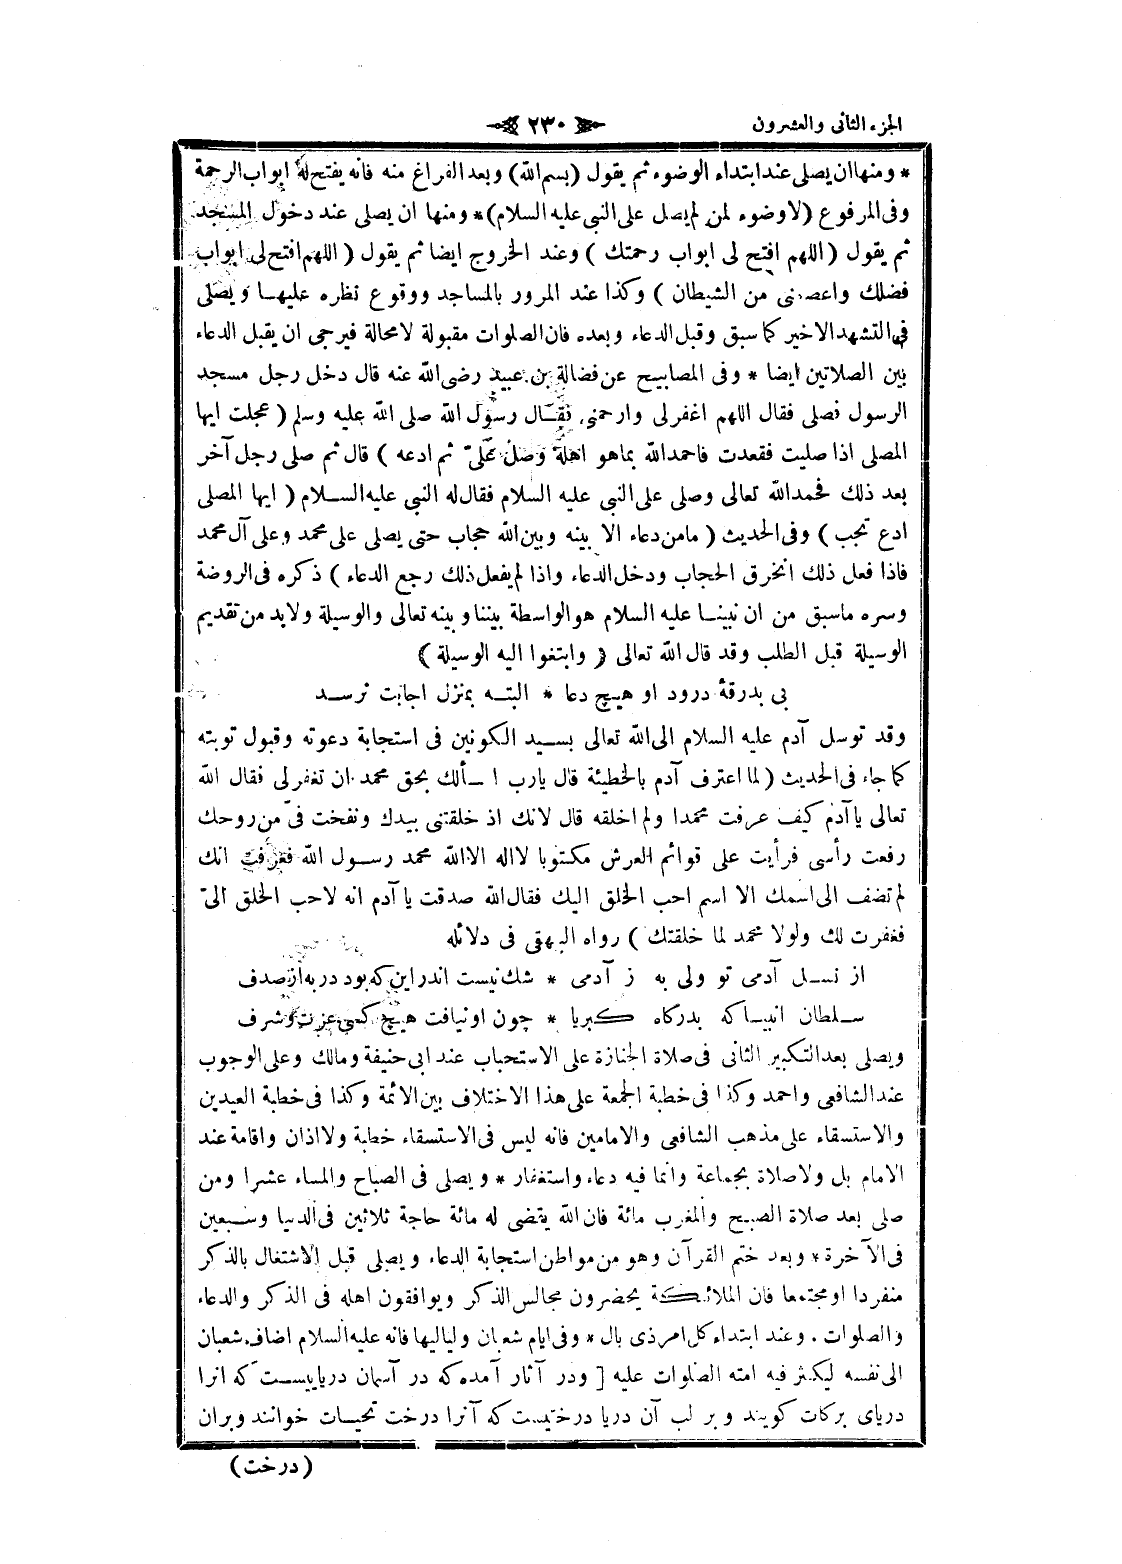 الجزء الثانى والعشرون
٢٣٠
* ومنها ان يصلى عند ابتداء الوضوء ثم يقول (بسم الله) وبعد الفراغ منه فانه يفتح له ابواب الرحمة
وفى المرفوع (لا وضوء لمن لم يصل على النبى عليه السلام) * ومنها ان يصلى عند دخول المسجد
ثم يقول ( اللهم افتح لى ابواب رحمتك ) وعند الخروج ايضا ثم يقول ( اللهم افتح لى ابواب
فضلك واعصمنى من الشيطان ) وكذا عند المرور بالمساجد ووقوع نظره عليهـا ويصلى
فى التشهد الاخير كما سبق وقبل الدعاء وبعده فان الصلوات مقبولة لا محالة فيرجى ان يقبل الدعاء
بين الصلاتين ايضا * وفى المصابيح عن فضالة بن عبيد رضى الله عنه قال دخل رجل مسجد
الرسول فصلى فقال اللهم اغفر لى وارحمنى فقـال رسول الله صلى الله عليه وسلم ( عجلت ايها
المصلى اذا صليت فقعدت فاحمد الله بما هو اهله وصل علىّ ثم ادعه ) قال ثم صلى رجل آخر
بعد ذلك فحمد الله تعالى وصلى على النبى عليه السلام فقال له النبى عليه السـلام ( ايها المصلى
ادع تجب ) وفى الحديث ( مامن دعاء الا بينه وبين الله حجاب حتى يصلى على محمد وعلى آل محمد
فاذا فعل ذلك انخرق الحجاب ودخل الدعاء واذا لم يفعل ذلك رجع الدعاء ) ذكره فى الروضة
وسره ماسبق من ان نبينـا عليه السلام هو الواسطة بيننا وبينه تعالى والوسيلة ولابد من تقديم
الوسيلة قبل الطلب وقد قال الله تعالى ( وابتغوا اليه الوسيلة )
بى بدرقۀ درود او هيچ دعا * البتـه بمنزل اجابت نرسـد
وقد توسل آدم عليه السلام الى الله تعالى بسـيد الكونين فى استجابة دعوته وقبول توبته
كما جاء فى الحديث ( لما اعترف آدم بالخطيئة قال يارب اسـألك بحق محمد ان تغفر لى فقال الله
تعالى يا آدم كيف عرفت محمدا ولم اخلقه قال لانك اذ خلقتنى بيدك ونفخت فىّ من روحك
رفعت رأسى فرأيت على قوائم العرش مكتوبا لااله الاالله محمد رسـول الله فعرفت انك
لم تضف الى اسمك الا اسم احب الخلق اليك فقال الله صدقت يا آدم انه لاحب الخلق الىّ
فغفرت لك ولولا محمد لما خلقتك ) رواه البيهقى فى دلائله
از نسـل آدمى تو ولى به ز آدمى * شك نيست اندر اين كه بود در به از صدف
سـلطان انبيـا كه بدركاه كبريا * چون او نيافت هيچ كسى عزت وشرف
ويصلى بعد التكبير الثانى فى صلاة الجنازة على الاستحباب عند ابى حنيفة ومالك وعلى الوجوب
عند الشافعى واحمد وكذا فى خطبة الجمعة على هذا الاختلاف بين الائمة وكذا فى خطبة العيدين
والاستسقاء على مذهب الشافعى والامامين فانه ليس فى الاستسقاء خطبة ولا اذان واقامة عند
الامام بل ولا صلاة بجماعة وانما فيه دعاء واستغفار * ويصلى فى الصباح والمساء عشرا ومن
صلى بعد صلاة الصبح والمغرب مائة فان الله يقضى له مائة حاجة ثلاثين فى الدنيا وسـبعين
فى الآخرة * وبعد ختم القرآن وهو من مواطن استجابة الدعاء ويصلى قبل الاشتغال بالذكر
منفردا اومجتمعا فان الملائكة يحضرون مجالس الذكر ويوافقون اهله فى الذكر والدعاء
والصلوات . وعند ابتداء كل امر ذى بال * وفى ايام شعبان ولياليها فانه عليه السلام اضاف شعبان
الى نفسه ليكثر فيه امته الصلوات عليه [ ودر آثار آمده كه در آسمان درياييسـت كه انرا
درياى بركات كويند وبر لب آن دريا درختيست كه آنرا درخت تحيـات خوانند وبران
(درخت)